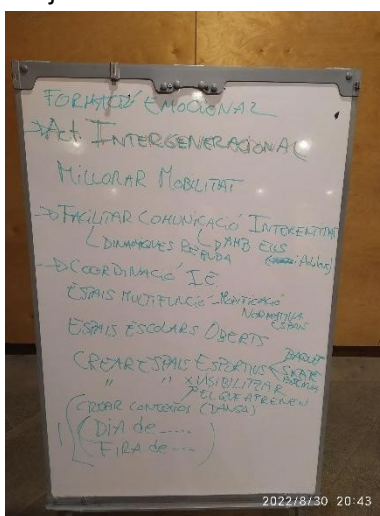 FORMACIÓ EMOCIONAL
→ Act. INTERGENERACIONAL
MILLORAR MOBILITAT
→ FACILITAR COMUNICACIÓ INTERENTITAT
DINÀMIQUES D AMB ELLS
→ COORDINACIÓ IE
ESPAIS MULTIFUNCIÓ - MODIFICACIÓ
NORMATIVA
ESPAIS
ESPAIS ESCOLARS OBERTS
CREAR ESPAIS ESPORTIUS SKATE
" " X VISIBILITZAR
EL QUE APRENEN
CREAR (DANSA)
DIA de .....
FIRA de ....
2022/8/30 20:43